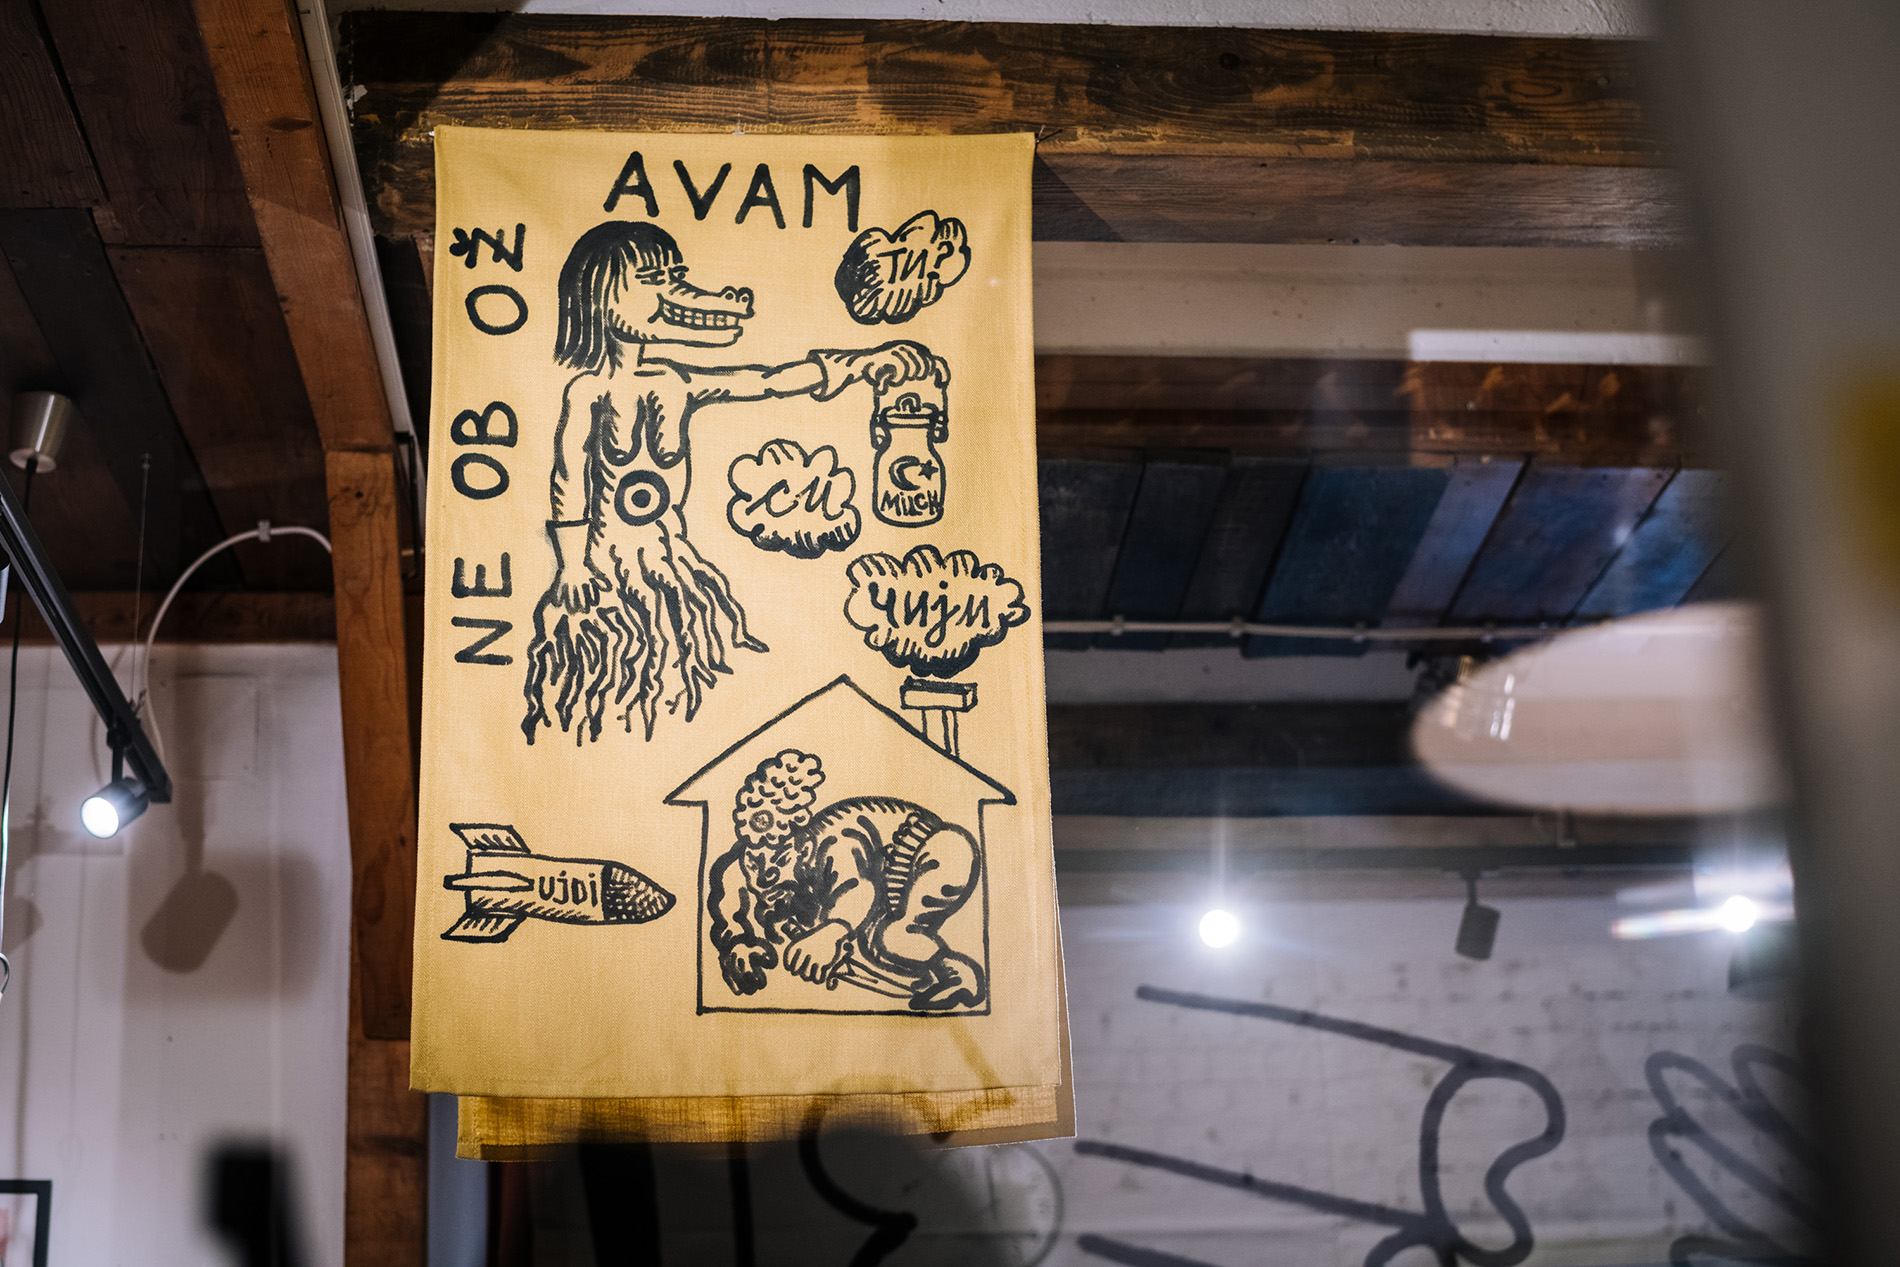 AVAM
NE OB OŽ
ти?
си
чији
MILCH
UJDI